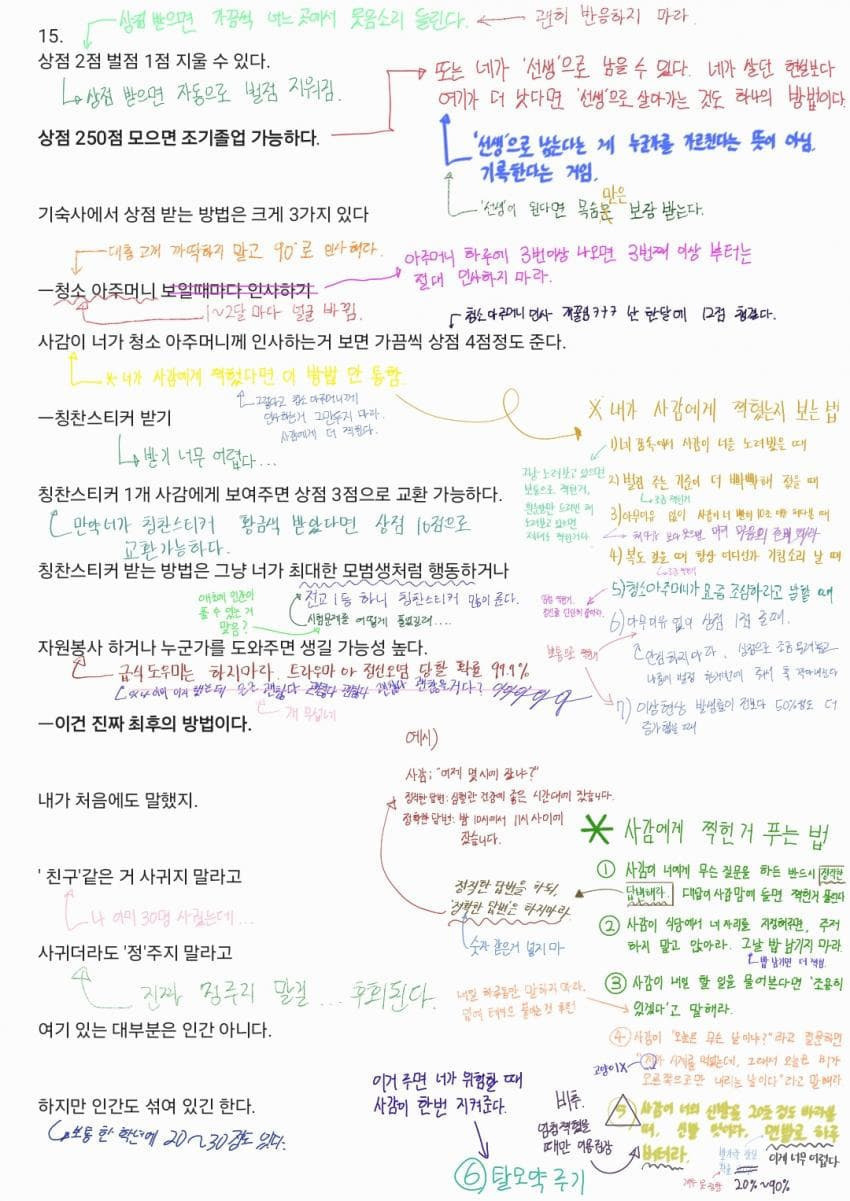 상점 받으면 가끔씩 너는 곳에서 웃음소리 들린다. ← 괜히 반응하지 마라.
15.
상점 2점 벌점 1점 지울 수 있다.
상점 받으면 자동으로 벌점 지워짐.
또는 네가 '선생'으로 남을 수 있다. 네가 살던 현실보다
여기가 더 낫다면 '선생'으로 살아가는 것도 하나의 방법이다.
상점 250점 모으면 조기졸업 가능하다.
'선생'으로 남는다는 게 누군가를 가르친다는 뜻이 아님.
기록한다는 거임.
'선생'이 된다면 목숨만은 보장 받는다.
기숙사에서 상점 받는 방법은 크게 3가지 있다
대충 고개 까딱하지 말고 90°로 인사해라.
아주머니 하루에 3번이상 나오면 3번째 이상 부터는
절대 인사하지 마라.
ㅡ청소 아주머니 보일때마다 인사하기
1~2달 마다 얼굴 바뀜.
청소아주머니 인사 개꿀임ㅋㅋㅋ 난 한달에 12점 챙겼다.
사감이 너가 청소 아주머니께 인사하는거 보면 가끔씩 상점 4점정도 준다.
※ 너가 사감에게 찍혔다면 이 방법 안 통함.
그렇다고 청소 아주머니께
인사하는거 그만두지 마라.
사감에게 더 찍힌다.
ㅡ칭찬스티커 받기
받기 너무 어렵다...
칭찬스티커 1개 사감에게 보여주면 상점 3점으로 교환 가능하다.
만약 너가 칭찬스티커 황금색 받았다면 상점 16점으로
교환가능하다.
칭찬스티커 받는 방법은 그냥 너가 최대한 모범생처럼 행동하거나
애초에 인간이
풀 수 있는 거
맞음?
전교 1등 하니 칭찬스티커 많이 준다.
시험문제를 어떻게 풀었길래...
자원봉사 하거나 누군가를 도와주면 생길 가능성 높다.
급식 도우미는 하지마라. 트라우마 아 정신오염 당할 확률 99.9%
괜찮다 괜찮다 괜찮다 괜찮다 괜찮은거다?
개 무섭네
ㅡ이건 진짜 최후의 방법이다.
내가 처음에도 말했지.
' 친구'같은 거 사귀지 말라고
나 이미 30명 사귔는데...
사귀더라도 '정'주지 말라고
진짜 정주지 말걸... 후회된다.
여기 있는 대부분은 인간 아니다.
하지만 인간도 섞여 있긴 한다.
보통 한 학년에 20~30 정도 있다.
※ 내가 사감에게 찍혔는지 보는 법
1) 네 꿈속에서 사감이 너를 노려봤을 때
그냥 노려보고 있으면
보통으로 찍힌거,
2) 벌점 주는 기준이 더 빡빡해 졌을 때
조금 찍힌거
3) 아무이유 없이 사감이 너 빤히 10초 이상 쳐다볼 때
4) 복도 걸을 때 항상 어디선가 기침소리 날 때
조금 찍힌거
5) 청소아주머니가 요즘 조심하라고 말할 때
6) 아무이유 없이 상점 1점 줄때.
안심하지 마라. 상점으로 조금 풀어놓고
나중에 벌점 한계선에 올려 훅 잡아내린다
보통으로 찍힌거
7) 이상현상 발생률이 전보다 50%정도 더
증가했을 때
예시)
사감: "어제 몇시에 잤냐?"
정직한 답변: 심혈관 건강에 좋은 시간대에 잤습니다.
정확한 답변: 밤 10시에서 11시 사이에
잤습니다.
정직한 답변을 하되,
'정확한 답변'은 하지마라.
숫자 같은거 넣지 마
* 사감에게 찍힌거 푸는 법
① 사감이 너에게 무슨 질문을 하든 반드시 정직한
답변해라. 대답이 사감 맘에 들면 찍힌거 풀린다
② 사감이 식당에서 너 자리를 지정해주면, 주저
하지 말고 앉아라. 그날 밥 남기지 마라.
밥 남기면 더 찍힘.
③ 사감이 내일 할 일을 물어본다면 '조용히
있겠다'고 말해라.
내일 하루동안 말하지 마라.
입에 테이프 붙이는것 추천
④ 사감이 "오늘은 무슨 날이냐?"라고 질문하면
시계를 먹었는데, 그래서 오늘은 비가
오른쪽으로만 내리는 날이다"라고 말해라
고양이X
⑤ 사감이 너의 신발을 20초 정도 바라볼
때, 신발 벗어라. 맨발로 하루
버텨라.
이게 너무 어렵다
20%~90%
이거 주면 너가 위험할 때
사감이 한번 지켜준다.
비추.
엄청찍혔을
때만 이용권장
⑥ 탈모약 주기